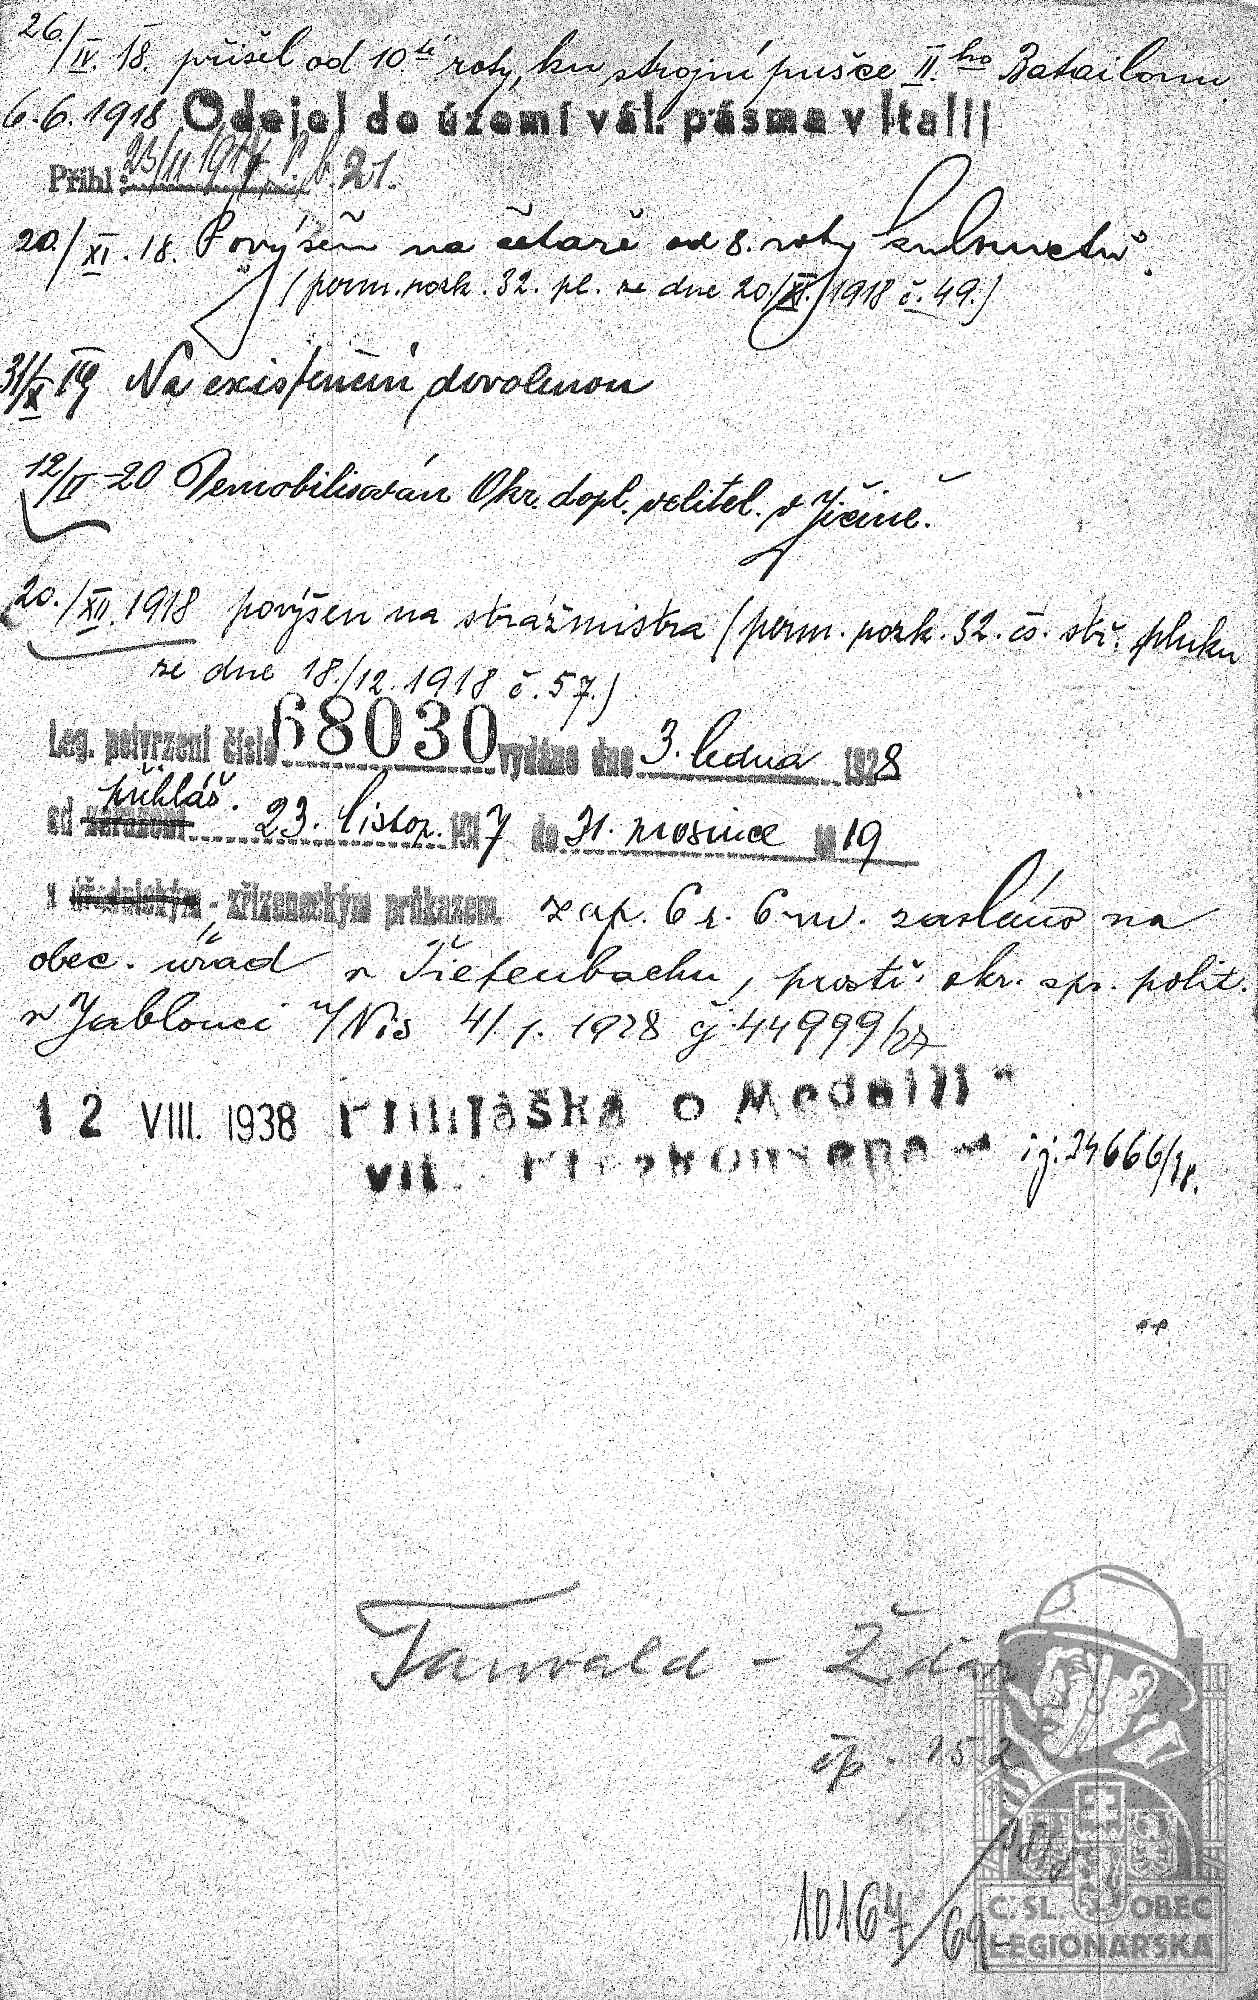 26./IV. 18. přišel od 10.té roty, ku strojní pušce II.ho Batailonu
6.6.1918 Odejel do území vál. pásma v Italii
Přihl: 23/11 1917 P. b. 21.
20./XI. 18. Povýšen na četaře od 8. roty kulometů.
(perm. rozk. 32. pl. ze dne 20./XI. 1918 č. 49.)
31/X 19 Na existenční dovolenou
12/II 20 Demobilisován Okr. dopl. velitel. v Jičíně.
20./XII. 1918 povýšen na strážmistra (perm. rozk. 32. čs. stř. pluku
ze dne 18./12. 1918 č. 57.)
Leg. potvrzení číslo 68030 vydáno dne 3. ledna 1928
přihláš.
od zařazení 23. listop. 1917 do 31. prosince 1919
s úřednickým - zřízeneckým průkazem. zap. 6 r. 6 m. zasláno na
obec. úřad v Tiefenbachu, prostř. okr. spr. polit.
v Jablonci n/Nis 4/1. 1928 čj. 44999/27
12 VIII. 1938 Přihláška o Medaili
vít.
čj. 24666/38.
Tanvald - Žďár
čp. 152
10164/69
Č. SL. OBEC
LEGIONÁŘSKÁ